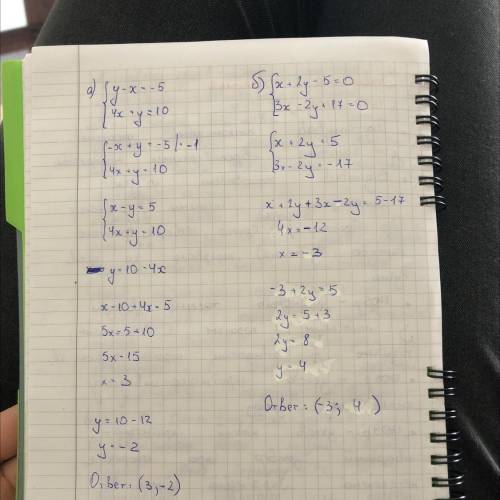 а) { y-x=-5
4x+y=10
{ -x+y=-5 |·-1
4x+y=10
{ x-y=5
4x+y=10
y=10-4x
x-10+4x=5
5x=5+10
5x=15
x=3
y=10-12
y=-2
Ответ: (3;-2)
б) { x+2y-5=0
3x-2y+17=0
{ x+2y=5
3x-2y=-17
x+2y+3x-2y=5-17
4x=-12
x=-3
-3+2y=5
2y=5+3
2y=8
y=4
Ответ: (-3; 4)